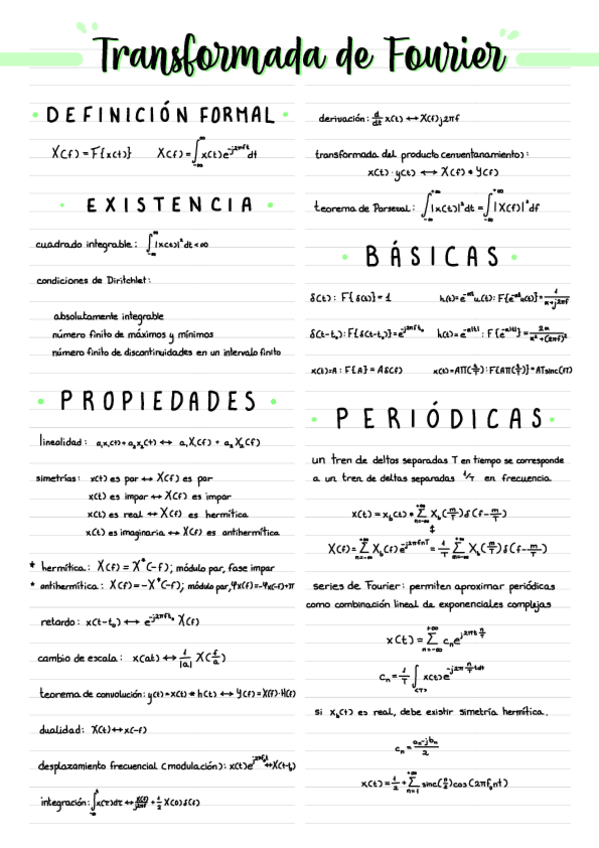 Transformada de Fourier
DEFINICIÓN FORMAL
X(f) = F{x(t)} X(f) = ∫_{-∞}^{∞} x(t)e^{-j2πft} dt
EXISTENCIA
cuadrado integrable: ∫_{-∞}^{∞} |x(t)|² dt < ∞
condiciones de Diritchlet:
absolutamente integrable
número finito de máximos y mínimos
número finito de discontinuidades en un intervalo finito
PROPIEDADES
linealidad: a₁x₁(t) + a₂x₂(t) ↔ a₁X₁(f) + a₂X₂(f)
simetrías: x(t) es par ↔ X(f) es par
x(t) es impar ↔ X(f) es impar
x(t) es real ↔ X(f) es hermítica
x(t) es imaginaria ↔ X(f) es antihermítica
* hermítica: X(f) = X*(-f); módulo par, fase impar
* antihermítica: X(f) = -X*(-f); módulo par, φx(f) = -φx(-f)+π
retardo: x(t-t₀) ↔ e^{-j2πft₀} X(f)
cambio de escala: x(at) ↔ 1/|a| X(f/a)
teorema de convolución: y(t) = x(t) * h(t) ↔ Y(f) = X(f)·H(f)
dualidad: X(t) ↔ x(-f)
desplazamiento frecuencial (modulación): x(t)e^{j2πf₀t} ↔ X(t-t₀)
integración: x(τ)dτ ↔ X(f)/j2πf + 1/2 X(0)δ(f)
derivación: d/dt x(t) ↔ X(f)j2πf
transformada del producto (enventanamiento):
x(t)·y(t) ↔ X(f) * Y(f)
teorema de Parseval: ∫_{-∞}^{+∞} |x(t)|² dt = ∫_{-∞}^{+∞} |X(f)|² df
BÁSICAS
δ(t): F{δ(t)} = 1
δ(t-t₀): F{δ(t-t₀)} = e^{-j2πft₀}
x(t)=A: F{A} = Aδ(f)
PERIÓDICAS
un tren de deltas separadas T en tiempo se corresponde
a un tren de deltas separadas 1/T en frecuencia
series de Fourier: permiten aproximar periódicas
como combinación lineal de exponenciales complejas
si x_b(t) es real, debe existir simetría hermítica.
c_n = (a_n - jb_n)/2